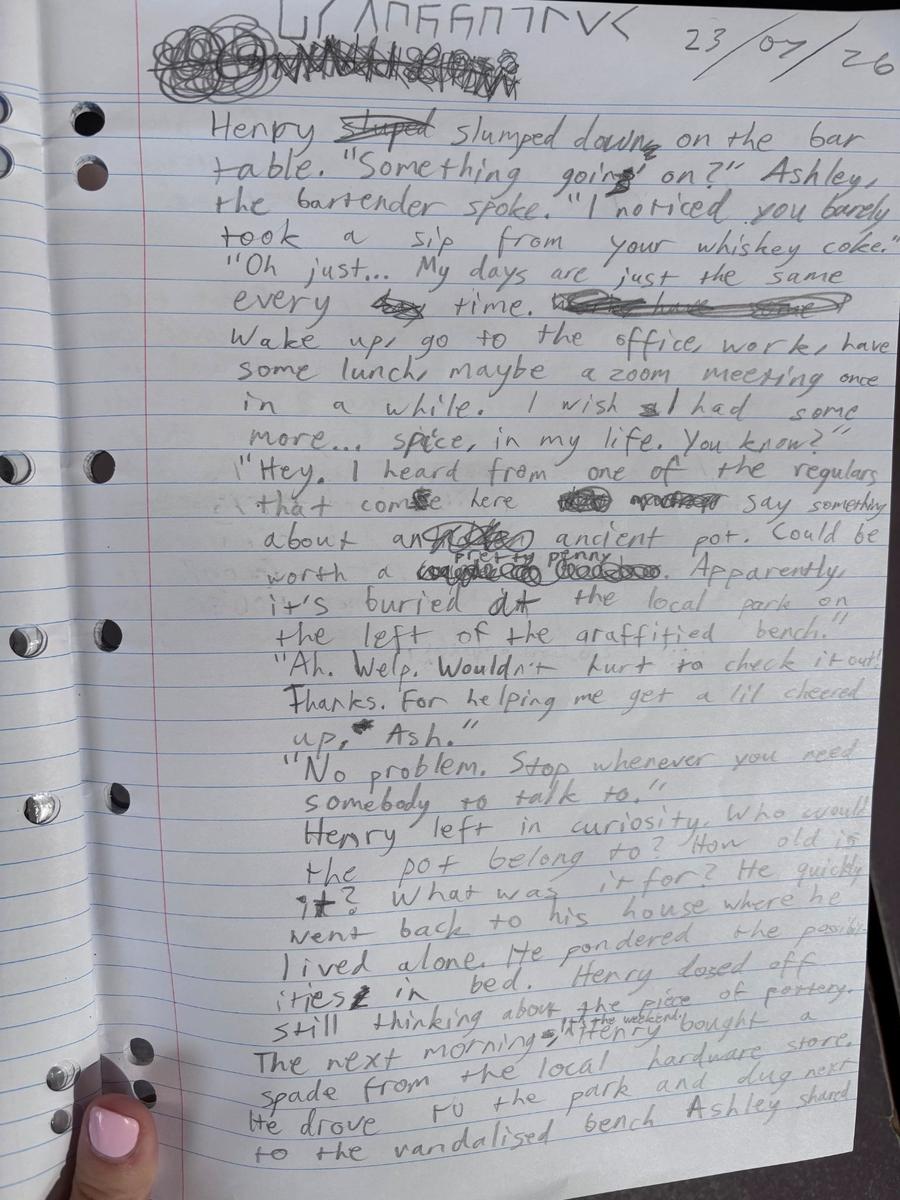 23/07/26
Henry slumped down, on the bar
table. "Something going on?" Ashley,
the bartender spoke. "I noticed you barely
took a sip from your whiskey coke."
"Oh just... My days are just the same
every time.
Wake up, go to the office, work, have
some lunch, maybe a zoom meeting once
in a while. I wish I had some
more... spice, in my life. You know?"
"Hey. I heard from one of the regulars
that come here say something
about an ancient pot. Could be
worth a pretty penny. Apparently,
it's buried at the local park on
the left of the graffitied bench."
"Ah. Welp. Wouldn't hurt to check it out!
Thanks. For helping me get a lil cheered
up, Ash."
"No problem. Stop whenever you need
somebody to talk to."
Henry left in curiosity. Who would
the pot belong to? How old is
it? What was it for? He quickly
went back to his house where he
lived alone. He pondered the possibil-
ities in bed. Henry dosed off
still thinking about the piece of pottery.
The next morning, the weekend, Henry bought a
spade from the local hardware store.
He drove to the park and dug next
to the vandalised bench Ashley shared